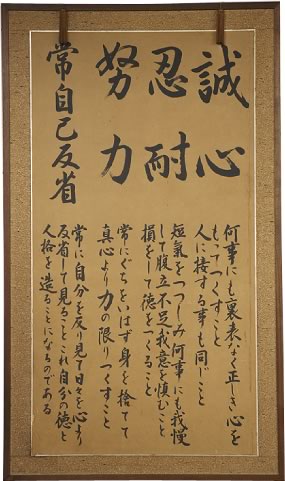 誠心
忍耐
努力
常自己反省
何事にも裏表なく正しき心を
もってつくすこと
人に接する事も同じこと
短氣をつつしみ何事にも我慢
して腹立不足我意を慎むこと
損をして徳をつくること
常にぐちをいはず身を捨てて
真心より力の限りつくすこと
常に自分を反り見て日々を心より
反省して見ることこれ自分の徳と
人格を造ることになるのである